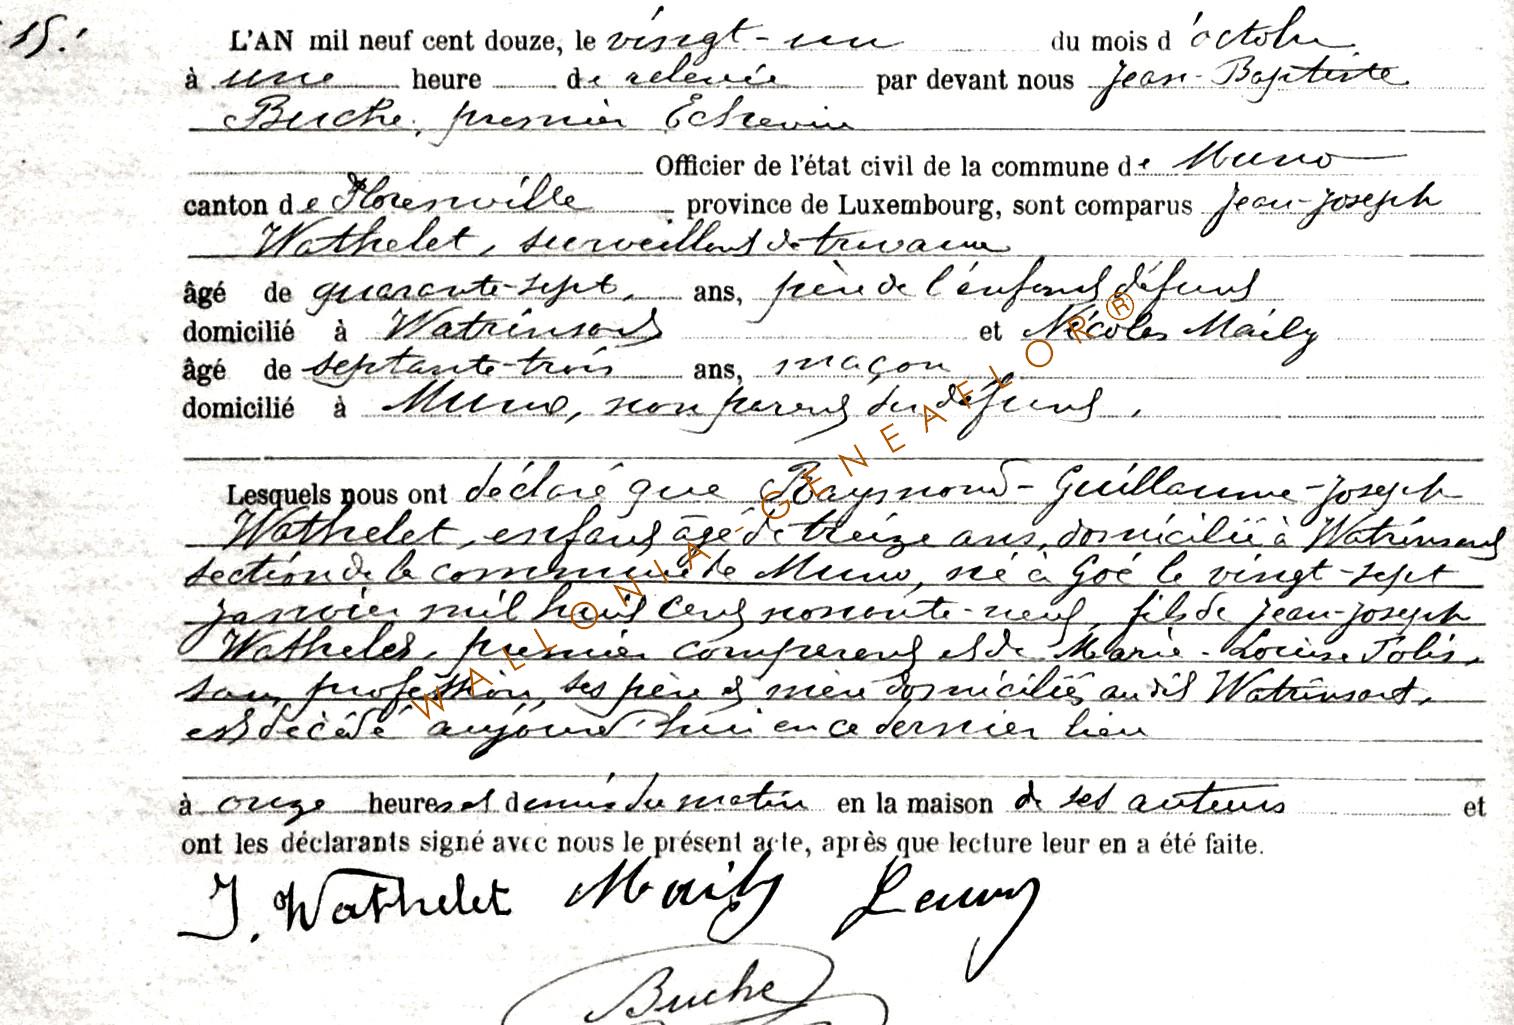 15.
L'AN mil neuf cent douze, le vingt-un du mois d'octobre
à une heure de relevée par devant nous Jean-Baptiste
Buche, premier Echevin
Officier de l'état civil de la commune de Muno
canton de Florenville, province de Luxembourg, sont comparus Jean-Joseph
Wathelet, surveillant de travaux
âgé de quarante-sept ans, père de l'enfant défunt
domicilié à Watrinsart et Nicolas Maily
âgé de septante-trois ans, maçon
domicilié à Muno, non parent du défunt,
Lesquels nous ont déclaré que Raymond-Guillaume-Joseph
Wathelet, enfant âgé de treize ans, domicilié à Watrinsart
section de la commune de Muno, né à Goé le vingt-sept
janvier mil huit cent nonante-neuf, fils de Jean-Joseph
Wathelet, premier comparant et de Marie-Louise
sans profession, ses père et mère domiciliés au dit Watrinsart,
est décédé aujourd'hui en ce dernier lieu
à onze heures et demie du matin en la maison de ses auteurs et
ont les déclarants signé avec nous le présent acte, après que lecture leur en a été faite.
J. Wathelet Maily
Buche
WALLONIA-GENEAFLOR®